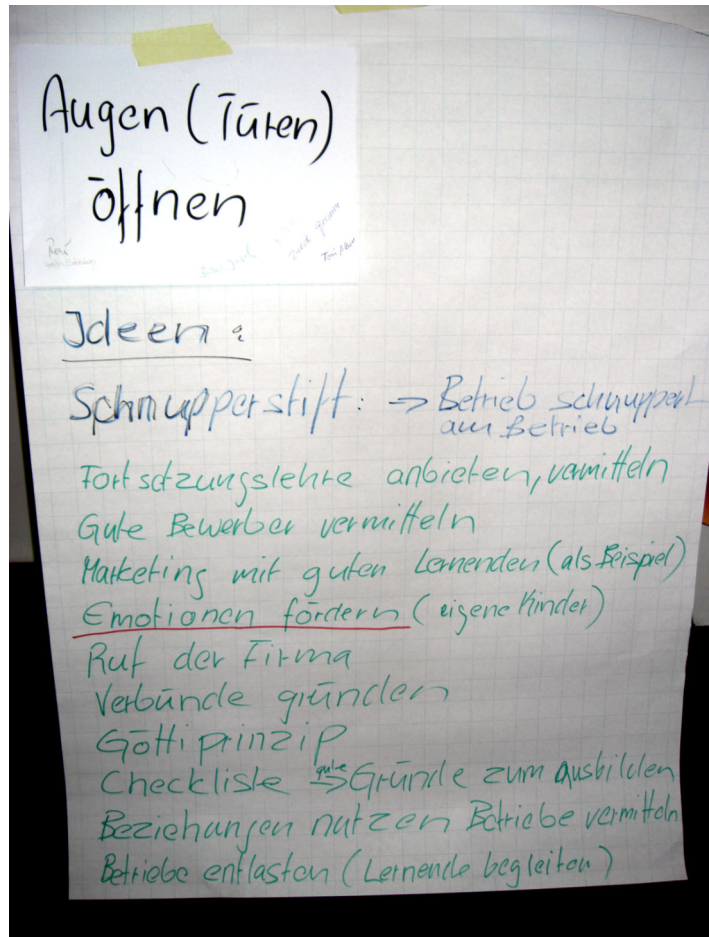 Augen (Türen)
öffnen
René
Toni
Ideen:
Schnupperstift: → Betrieb schnuppert
am Betrieb
Fortsetzungslehre anbieten, vermitteln
Gute Bewerber vermitteln
Marketing mit guten Lernenden (als Beispiel)
Emotionen fördern (eigene Kinder)
Ruf der Firma
Verbünde gründen
Göttiprinzip
Checkliste gute → Gründe zum ausbilden
Beziehungen nutzen Betriebe vermitteln
Betriebe entlasten (Lernende begleiten)